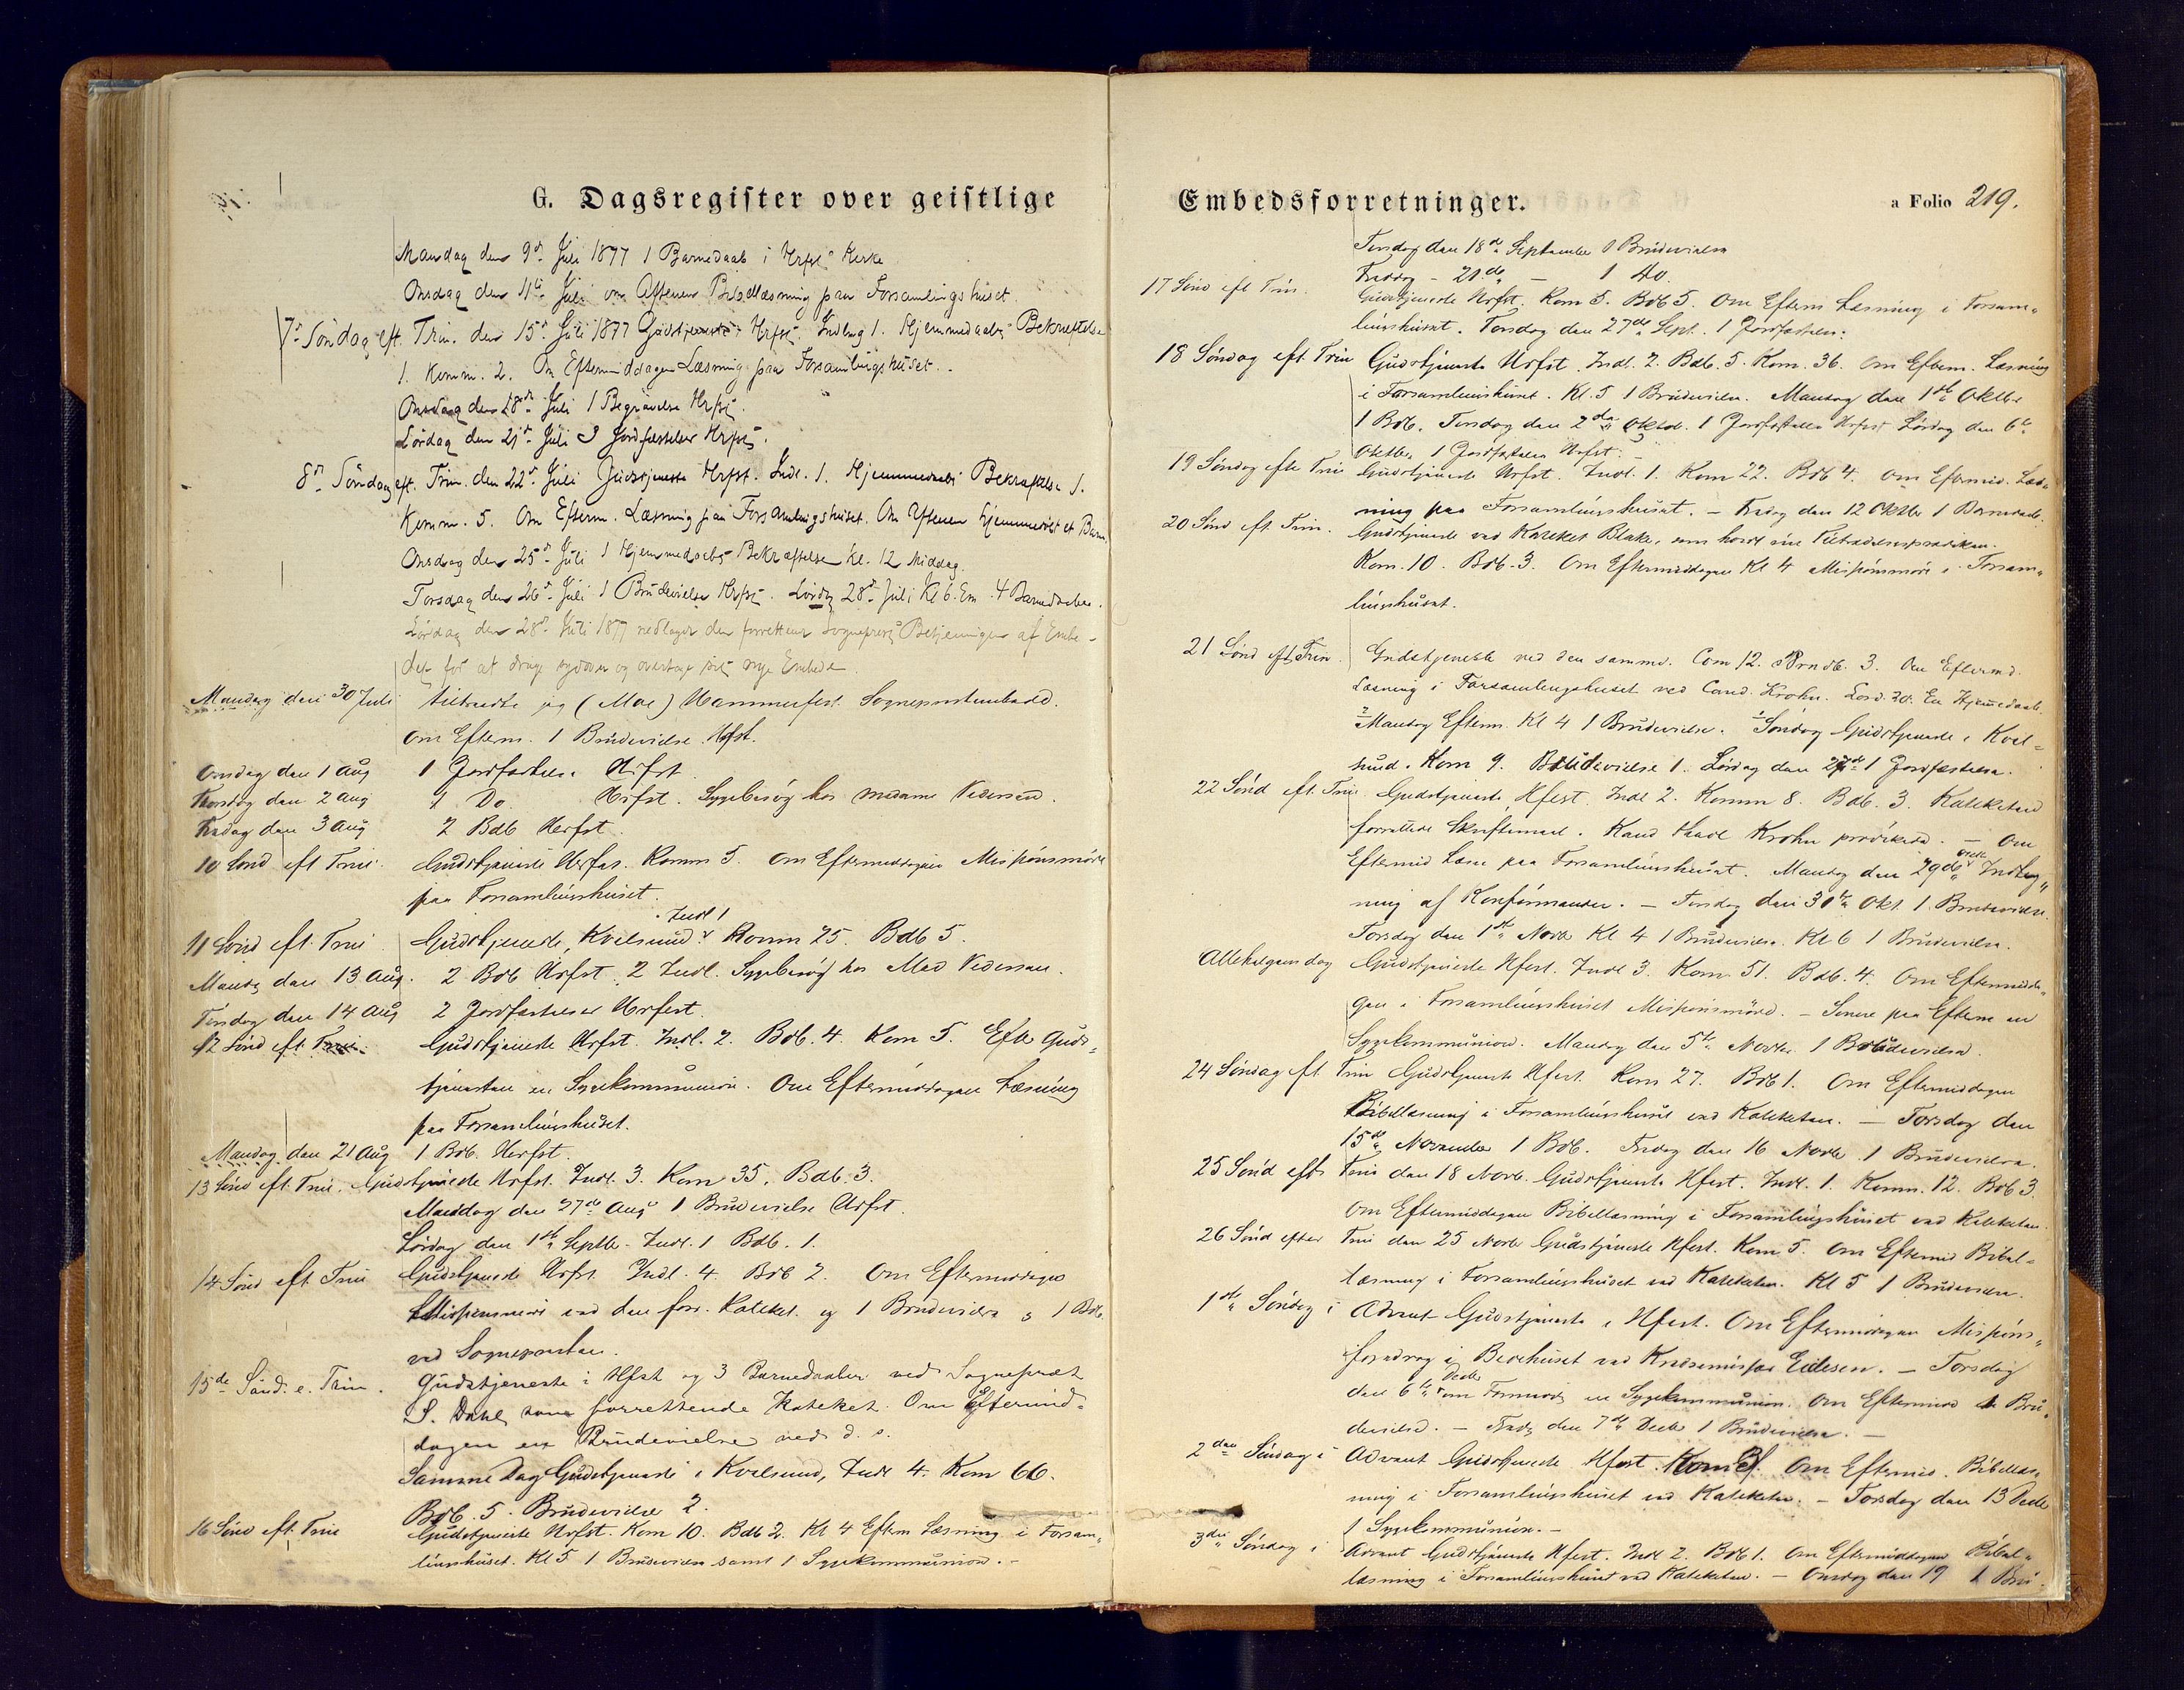 G. Dagsregister over geistlige
Mandag den 9de Juli 1877 1 Barnedaab i Hrfst Kirke
Onsdag den 11te Juli om Aftenen Bibellæsning paa Forsamlingshuset.
7de Søndag eft. Trin. den 15de Juli 1877 Gudstjeneste Hrfst. Indleg 1. Hjemmedaabs Bekræftelse
1. Komm. 2. Om Eftermiddagen Læsning paa Forsamlingshuset.
Onsdag den 18de Juli 1 Begravelse Hrfst.
Lørdag den 21de Juli 3 Jordfæstelser Hrfst.
8de Søndag eft. Trin. den 22de Juli Gudstjeneste Hrfst. Indl. 1. Hjemmedaabs Bekræftelse 1.
Komm. 5. Om Efterm. Læsning paa Forsamlingshuset. Om Aftenen hjemmedøbt et Barn
Onsdag den 25de Juli 1 Hjemmedaabs Bekræftelse Kl. 12 Middag.
Torsdag den 26de Juli 1 Brudevielse Hrfst. Lørdg 28de Juli Kl 6. Em. 4 Barnedaaber.
Lørdag den 28de Juli 1877 nedlagde den forrettende Sogneprest Betjeningen af Embe-
det for at drage sydover og overtage sit nye Embede
Mandag den 30 Juli tiltraadte jeg (Moe) Hammerfest Sogneprestembede.
Om Efterm. 1 Brudevielse Hfst.
Onsdag den 1 Aug 1 Jordfæstelse Hrfst.
Thorsdag den 2 Aug 1 Do. Hrfst. Sygebesøg hos Madame Pedersen.
Fredag den 3 Aug 2 Bdb Herfst.
10 Sønd eft Trin. Gudstjeneste Herfst. Komm 5. Om Eftermiddagen Missionsmøde
paa Forsamlingshuset.
11 Sønd eft. Trin Gudstjeneste Kvalsund. Indl 1 Komm 25. Bdb 5.
Mandg den 13 Aug. 2 Bdb Hrfst. 2 Indl. Sygebesøg hos Mad Pedersen.
Tirsdag den 14 Aug 2 Jordfæstelser Hrfest.
12 Sønd eft. Trin. Gudstjeneste Hrfst. Indl. 2. Bdb. 4. Kom 5. Eft. Guds-
tjenesten en Sygekommunion. Om Eftermiddagen Læsning
paa Forsamlingshuset.
Mandag den 21 Aug 1 Bdb. Herfst.
13 Sønd eft. Trin. Gudstjeneste Hrfst. Indl. 3. Kom 35. Bdb. 3.
Mandag den 27de Aug 1 Brudevielse Hrfst.
Lørdag den 1ste Septbr. Indl. 1 Bdb. 1.
14 Sønd eft Trin Gudstjeneste Hrfst. Indl. 4. Bdb 2. Om Eftermiddagen
Missionsmøde ved den forr. Kateket og 1 Brudevielse og 1 Bdb.
ved Sognepresten.
15de Sønd. e. Trin. Gudstjeneste i Hfst og 3 Barnedaaber ved Sogneprest
S. Dahl, som forrettende Kateket. Om Eftermid-
dagen en Brudevielse ved d. s.
Samme Dag Gudstjeneste i Kvalsund, Indl 4. Kom 66.
Bdb. 5. Brudevielse 2.
16 Sønd eft. Trin Gudstjeneste Hrfst. Kom 10. Bdb 2. Kl 4 Efterm Læsning i Forsam-
lingshuset. Kl 5 1 Brudevielse samt 1 Sygekommunion.
Embedsforretninger.
a Folio 219.
Tirsdag den 18de September 1 Brudevielse
Fredag - 21de - 1 do.
17 Sønd eft Trin. Gudstjeneste Hrfst. Kom 5. Bdb 5. Om Efterm Læsning i Forsam-
lingshuset. Torsdag den 27de Sept. 1 Jordfæstelse.
18 Søndag eft. Trin Gudstjeneste Hrfst. Indl. 2. Bdb. 5. Kom. 36. Om Efterm. Læsning
i Forsamlingshuset. Kl. 5 1 Brudevielse. Mandag den 1ste Oktbr
1 Bdb. Tirsdag den 2den Oktob. 1 Jordfæstelse Hrfst Lørdag den 6te
Oktbr. 1 Jordfæstelse Hrfst.
19 Søndag efte Trin Gudstjeneste Hrfst. Indl. 1. Kom 22. Bdb 4. Om Eftermid. Læs-
ning paa Forsamlingshuset. - Fredag den 12 Oktbr 1 Barnedaab.
20 Sønd eft. Trin. Gudstjeneste ved Kateket Blake, som holdt sin Tiltrædelsesprædiken.
Kom. 10. Bdb. 3. Om Eftermiddagen Kl 4 Missionsmøde i Forsam-
lingshuset.
21 Sønd eft. Trin. Gudstjeneste ved den samme. Com 12. Barndb. 3. Om Eftermd.
Læsning i Forsamlingshuset ved Cand. Krohn. Lørd. 20. En Hjemmedaab.
Mandag Efterm. Kl 4 1 Brudevielse. Søndag Gudstjeneste i Kval-
sund. Kom 9. Brudevielse 1. Lørdag den 27de 1 Jordfæstelse.
22 Sønd eft. Trin Gudstjeneste Hfest. Indl 2. Komm 8. Bdb. 3. Kateketen
forrettede Skriftemaal. Kand theol Krohn prædikede. - Om
Eftermid Læsn paa Forsamlingshuset. Mandag den 29de Oktbr Indteg-
ning af Konfirmander. - Tirsdag den 30te Okt. 1 Brudevielse.
Torsdag den 1ste Novb Kl 4 1 Brudevielse. Kl 6 1 Brudevielse.
Allehelgensdag Gudstjeneste Hfest. Indl 3. Kom 51. Bdb. 4. Om Eftermidda-
gen i Forsamlingshuset Missionsmøde. - Senere paa Efterm en
Sygekommunion. Mandag den 5te Novbr. 1 Brudevielse.
24 Søndag eft. Trin Gudstjeneste Hfest. Kom 27. Bdb 1. Om Eftermiddagen
Bibellæsning i Forsamlingshuset ved Kateketen. - Torsdag den
15de November 1 Bdb. Fredag den 16 Novbr. 1 Brudevielse.
25 Sønd eft. Trin den 18 Novb. Gudstjeneste Hfest. Indl. 1. Komm. 12. Bdb 3.
Om Eftermiddagen Bibellæsning i Forsamlingshuset ved Kateketen.
26 Sønd efter Trin den 25 Novb Gudstjeneste Hfest. Kom 5. Om Eftermid Bibel-
læsning i Forsamlingshuset ved Kateketen. Kl 5 1 Brudevielse.
1ste Søndag i Advent Gudstjeneste i Hfest. Om Eftermiddagen Missions-
foredrag i Bedehuset ved Eilesen. - Torsdag
den 6te Decbr om Formid en Sygekommunion. Om Eftermid 1 Bru-
devielse. - Fredg den 7de Decbr 1 Brudevielse. -
2den Søndag i Advent Gudstjeneste Hfest. Kom 8. Om Eftermid. Bibellæs-
ning i Forsamlingshuset ved Kateketen. - Torsdag den 13 Decbr
1 Sygekommunion. -
3die Søndag i Advent Gudstjeneste Hfest. Indl 2. Bdb 1. Om Eftermiddagen Bibel-
læsning i Forsamlingshuset ved Kateketen. - Onsdag den 19 1 Bru-